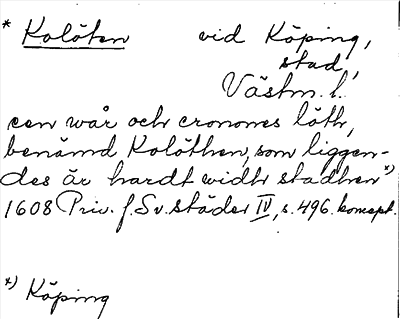 * Kolöten vid Köping,
stad,
Västm. l.
een wår och cronones löth,
benämd Kolöthen, som liggen-
des är hardt widh stadhen *)
1608 Priv. f. Sv. städer IV, s. 496. koncept.
*) Köping